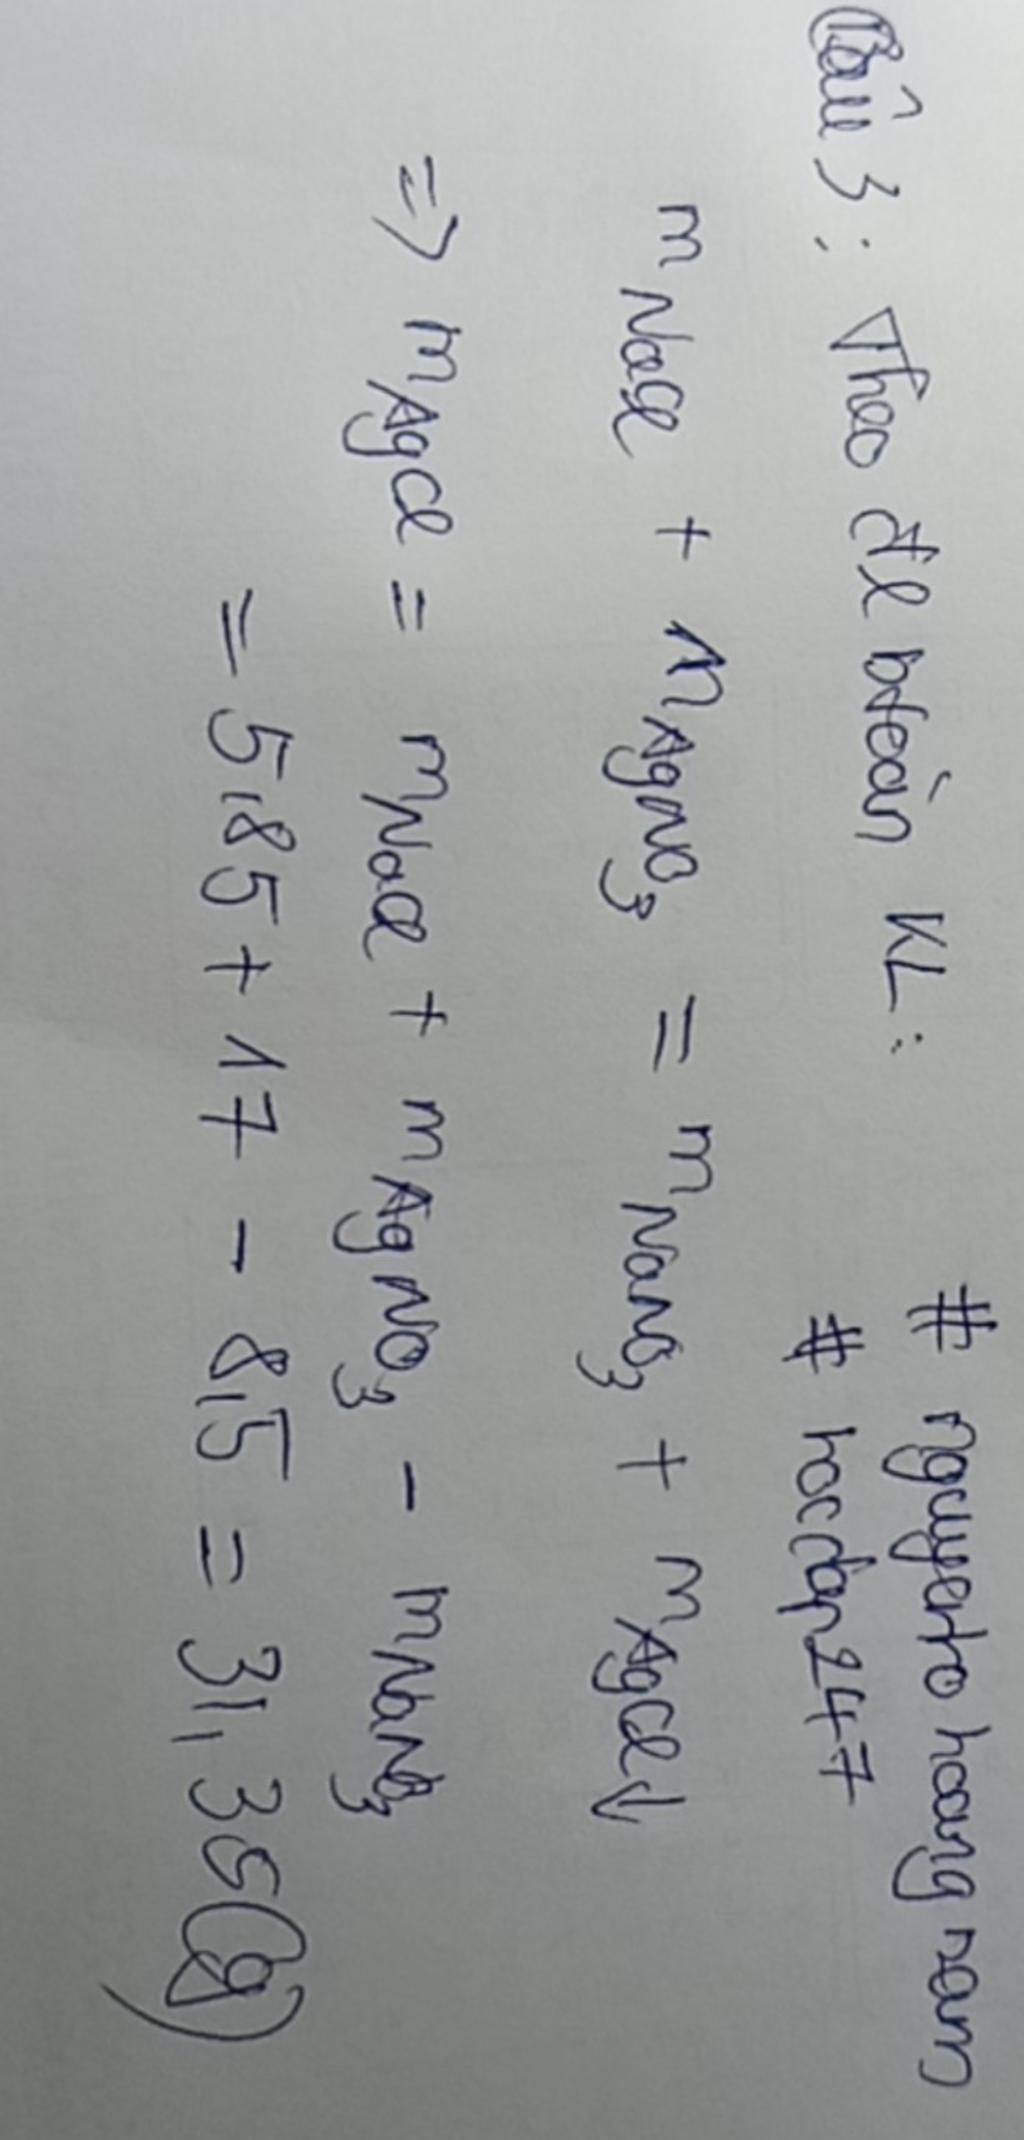 Câu 3 : Theo đl btoàn KL :
# nguyento hoang nam
# hocdap247
mNaCl + mAgNO3 = mNaNO3 + mAgCl↓
=> mAgCl = mNaCl + mAgNO3 - mNaNO3
= 5,85 + 17 - 8,5 = 31,35(g)